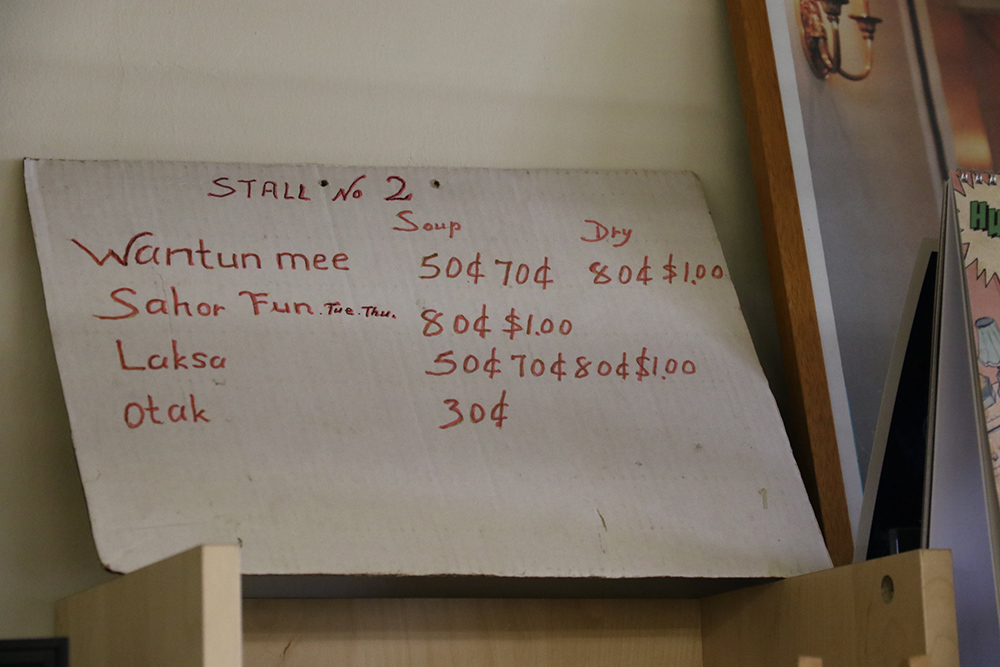 STALL No 2
Soup Dry
Wantun mee 50¢ 70¢ 80¢ $1.00
Sahor Fun. Tue. Thu. 80¢ $1.00
Laksa 50¢ 70¢ 80¢ $1.00
otak 30¢